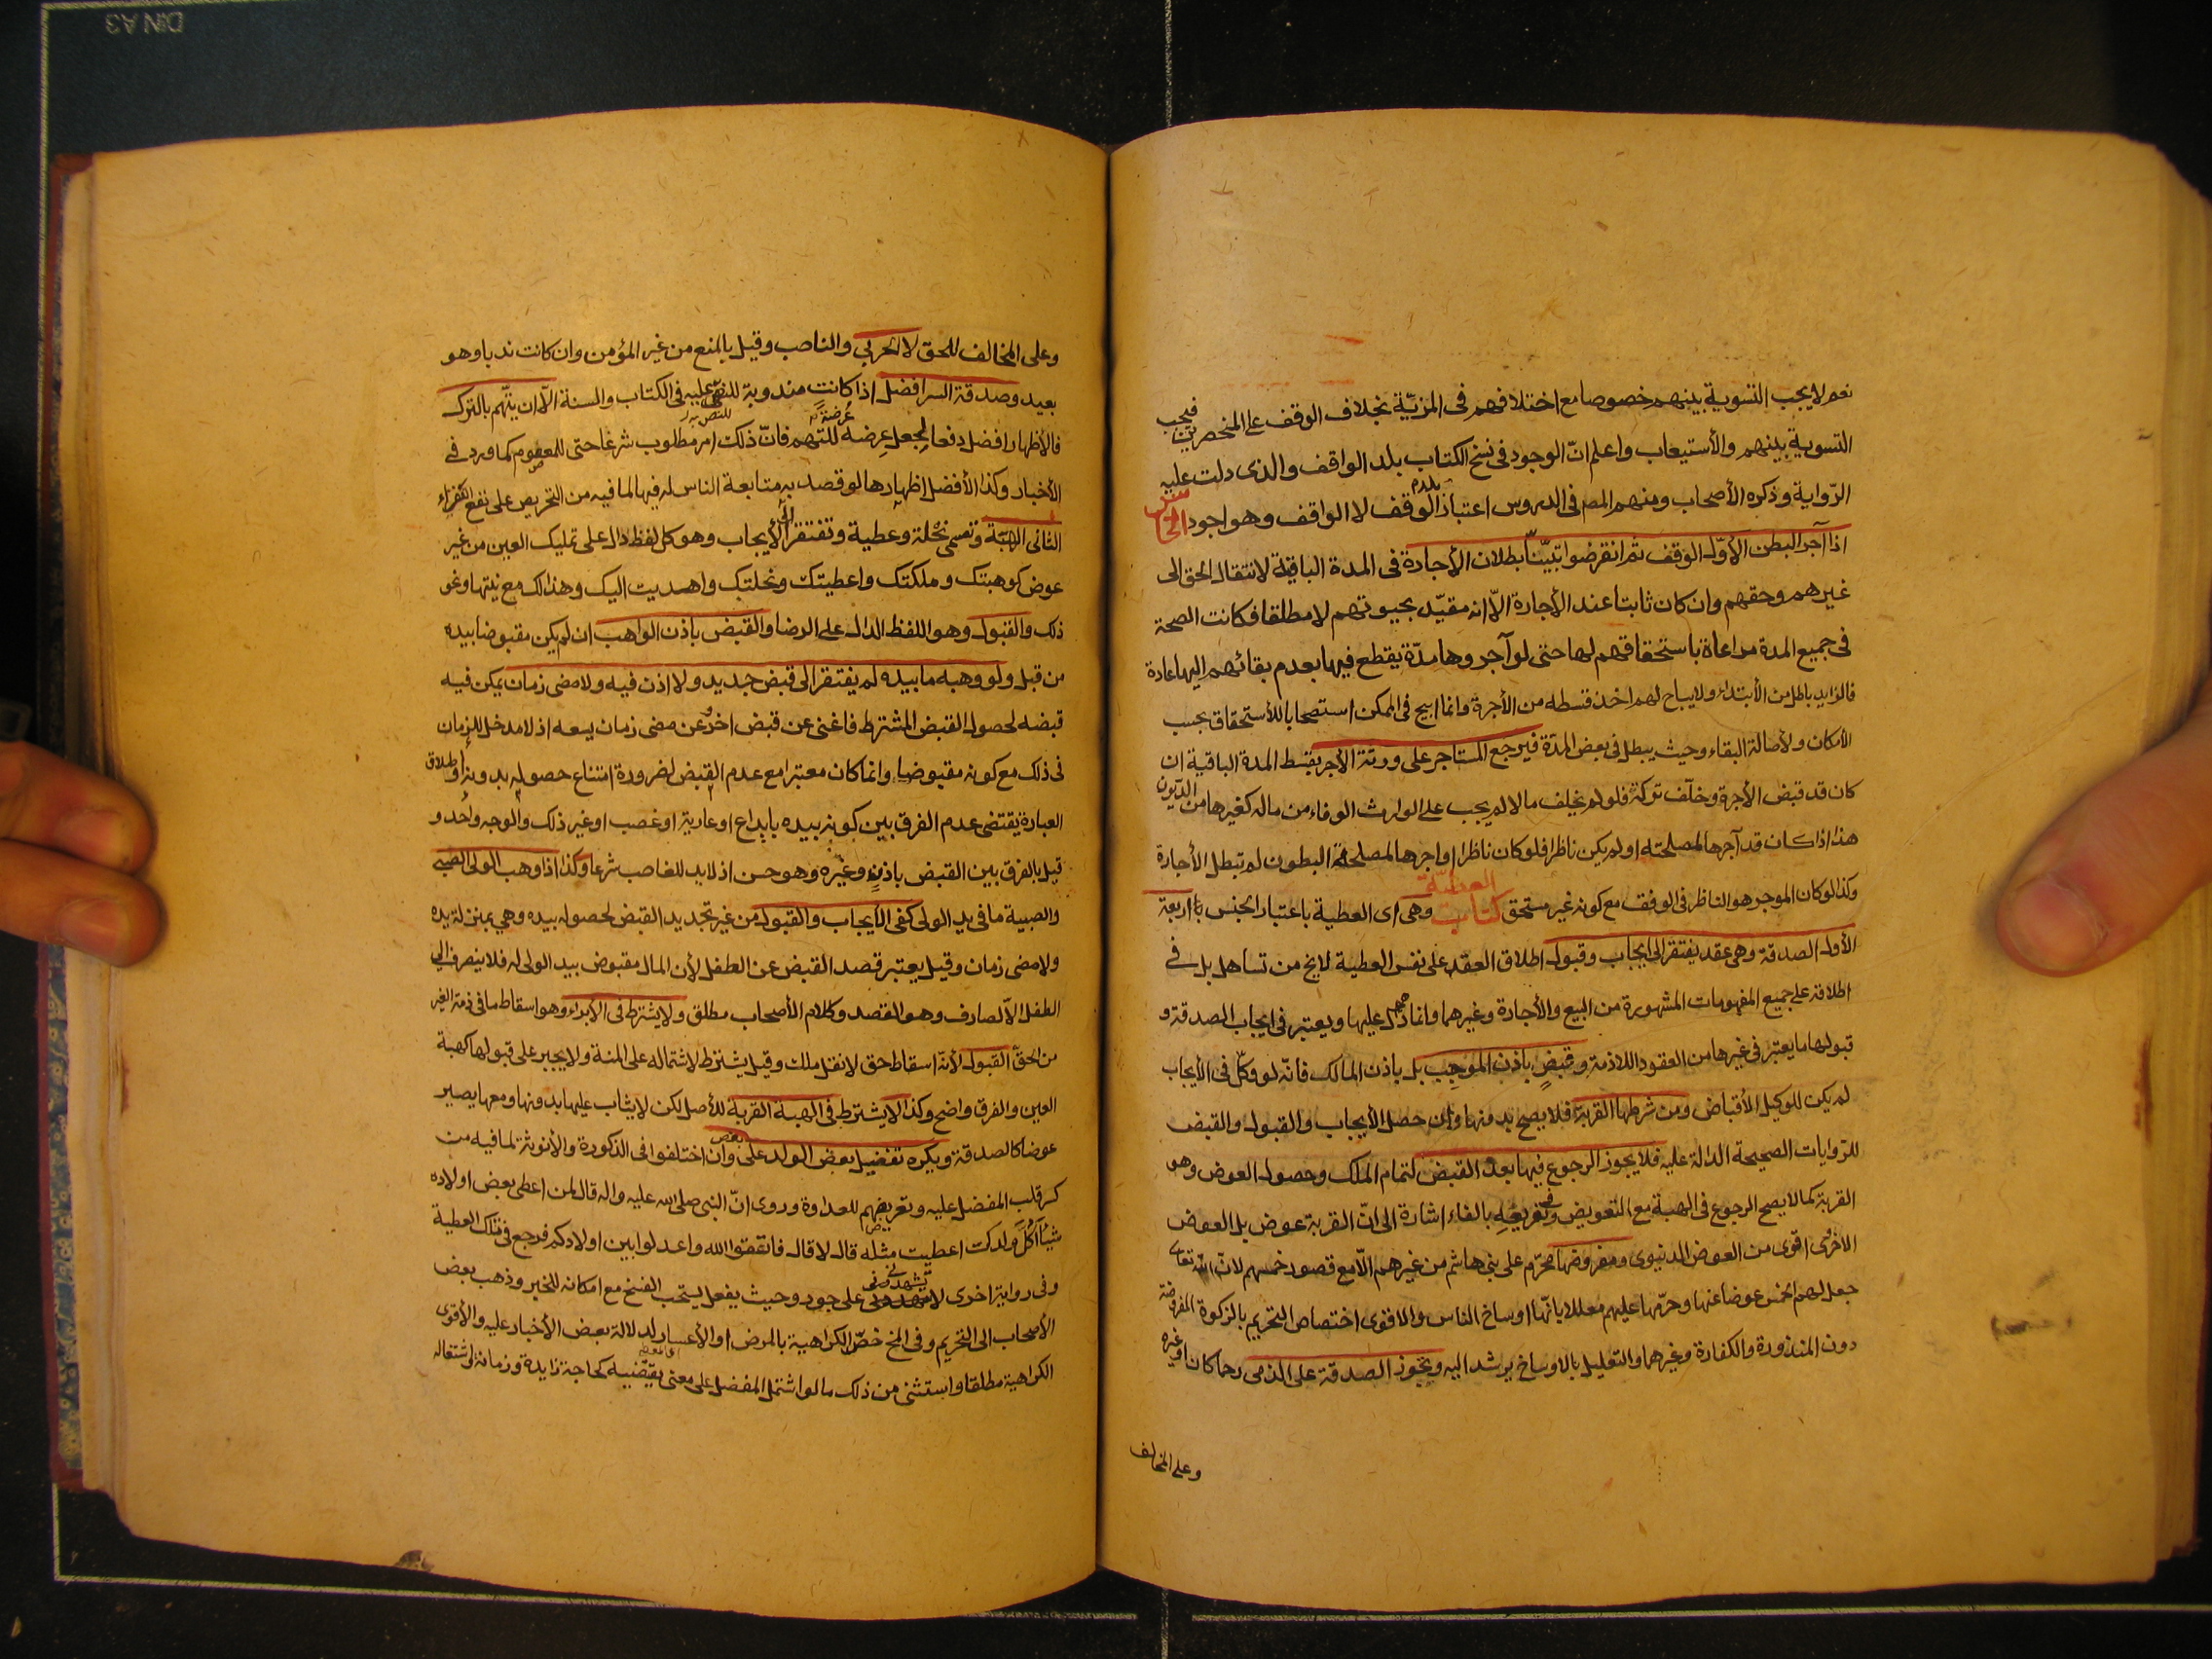 نعم لا يجب التسوية بينهم خصوصا مع اختلافهم فى المزيّة بخلاف الوقف على المنحصرين فيجب
التسوية بينهم والأستيعاب واعلم انّ الوجود فى نسخ الكتاب بلد الواقف والذى دلت عليه
الرّواية وذكره الأصحاب ومنهم المص فى الدروس اعتبار بلد الوقف لا الواقف وهو اجود الخامس
اذا آجر البطن الأوّل الوقف ثم انقرضوا تبيّنّا بطلان الأجارة فى المدة الباقية لانتقال الحق الى
غيرهم وحقهم وان كان ثابتا عند الأجارة الاّ انه مقيّد بحيوتهم لا مطلقا فكانت الصحة
فى جميع المدة مراعاة باستحقاقهم لها حتى لو آجروها مدّة يقطع فيها بعدم بقائهم اليها عادة
فالزايد باطل من الأبتداء ولا يباح لهم اخذ قسطه من الأجرة وانما ابيح فى الممكن استصحابا للأستحقاق بحسب
الأمكان ولأصالة البقاء وحيث يبطل فى بعض المدّة فيرجع المستاجر على ورثة الأجر بقسط المدة الباقية ان
كان قد قبض الأجرة وخلّف تركة فلو لم يخلف مالا لم يجب على الوارث الوفاء من ماله كغيرها من الديون
هذا اذا كان قد آجرها لمصلحته او لم يكن ناظرا فلو كان ناظرا واجرها لمصلحة البطون لم تبطل الأجارة
وكذا لو كان الموجر هو الناظر فى الوقف مع كونه غير مستحق كتاب العطيّة وهى اى العطية باعتبار الجنس اربعة
الأول الصدقة وهى عقد يفتقر الى ايجاب وقبول اطلاق العقد على نفس العطية لا يخ من تساهل بل فى
اطلاقه على جميع المفهومات المشهورة من البيع والأجارة وغيرهما وانما هو دال عليها ويعتبر فى ايجاب الصدقة و
قبولها ما يعتبر فى غيرها من العقود اللازمة وقبض باذن الموجب بل باذن المالك فانّه لو وكّل فى الأيجاب
لم يكن للوكيل الأقباض ومن شرطها القربة فلا يصح بدونها وان حصل الأيجاب والقبول والقبض
للرّوايات الصحيحة الدالة عليه فلا يجوز الرجوع فيها بعد القبض لتمام الملك وحصول العوض وهو
القربة كما لا يصح الرجوع فى الهبة مع التعويض وفى تفريعه بالفاء اشارة الى انّ القربة عوض بل العوض
الاخروى اقوى من العوض الدنيوى ومفروضها محرّم على بنى هاشم من غيرهم الاّ مع قصور خمسهم لانّ الله تعالى
جعل لهم الخمس عوضا عنها وحرّمها عليهم معللا بانّها اوساخ الناس والاقوى اختصاص التحريم بالزكوة المفروضة
دون المنذورة والكفارة وغيرهما والتعليل بالاوساخ يرشد اليه ويجوز الصدقة على الذمى رحما كان او غيره
وعلى المخالف
وعلى المخالف للحق لا الحربي والناصب وقيل بالمنع من غير المؤمن وان كانت ندبا وهو
بعيد وصدقة السر افضل اذا كانت مندوبة للنص عليه فى الكتاب والسنة الاّ ان يتّهم بالترك
فالأظهار افضل دفعا لجعل عِرضه عُرضة للتهم فانّ ذلك امر مطلوب شرعا حتى للمعصوم كما ورد فى
الأخبار وكذا الأفضل اظهارها لو قصد به متابعة الناس له فيها لما فيه من التحريص على نفع الفقراء
الثانى الهبة وتسمى نحلة وعطية وتفتقر الى الأيجاب وهو كل لفظ دال على تمليك العين من غير
عوض كوهبتك وملكتك واعطيتك ونحلتك واهديت اليك وهذا لك مع نيتها ونحو
ذلك والقبول وهو اللفظ الدال على الرضا والقبض باذن الواهب ان لم يكن مقبوضا بيده
من قبل ولو وهبه ما بيده لم يفتقر الى قبض جديد ولا اذن فيه ولا مضى زمان يمكن فيه
قبضه لحصول القبض المشترط فاغنى عن قبض اخر وعن مضى زمان يسعه اذ لا مدخل للزمان
فى ذلك مع كونه مقبوضا وانما كان معتبرا مع عدم القبض لضرورة امتناع حصوله بدونه واطلاق
العبارة يقتضى عدم الفرق بين كونه بيده بايداع او عارية او غصب او غير ذلك والوجه واحد و
قيل بالفرق بين القبض باذنه وغيره وهو حسن اذ لا يد للغاصب شرعا وكذا اذا وهب الولى الصبى
والصبية ما فى يد الولى كفى الأيجاب والقبول من غير تجديد القبض لحصوله بيده وهى بمنزلة يده
ولا مضى زمان وقيل يعتبر قصد القبض عن الطفل لأن المال مقبوض بيد الولى له فلا ينصرف الى
الطفل الاّ لصارف وهو القصد وكلام الأصحاب مطلق ولا يشترط فى الأبراء وهو اسقاط ما فى ذمة الغير
من الحق القبول لأنّه اسقاط حق لا نقل ملك وقيل يشترط لاشتماله على المنة ولا يجبر على قبولها كهبة
العين والفرق واضح وكذا لا يشترط فى الهبة القربة للأصل لكن لا يثاب عليها بدونها ومعها يصير
عوضا كالصدقة ويكره تفضيل بعض الولد على بعض وان اختلفوا فى الذكورة والأنوثة لما فيه من
كسر قلب المفضل عليه وتعريضهم للعداوة وروى انّ النبى صلى الله عليه واله قال لمن اعطى بعض اولاده
شيئا اكل ولدك اعطيت مثله قال لا قال فاتقوا الله واعدلوا بين اولادكم فرجع فى تلك العطية
وفى رواية اخرى لا تشهدنى على جور وحيث يفعل يستحب الفسخ مع امكانه للخبر وذهب بعض
الأصحاب الى التحريم وفى المخ خصّ الكراهية بالمرض او الأعسار لدلالة بعض الأخبار عليه والأقوى
الكراهية مطلقا واستثنى من ذلك ما لو اشتمل المفضل على معنى يقتضيه كحاجة زايدة وزمانة واشتغال